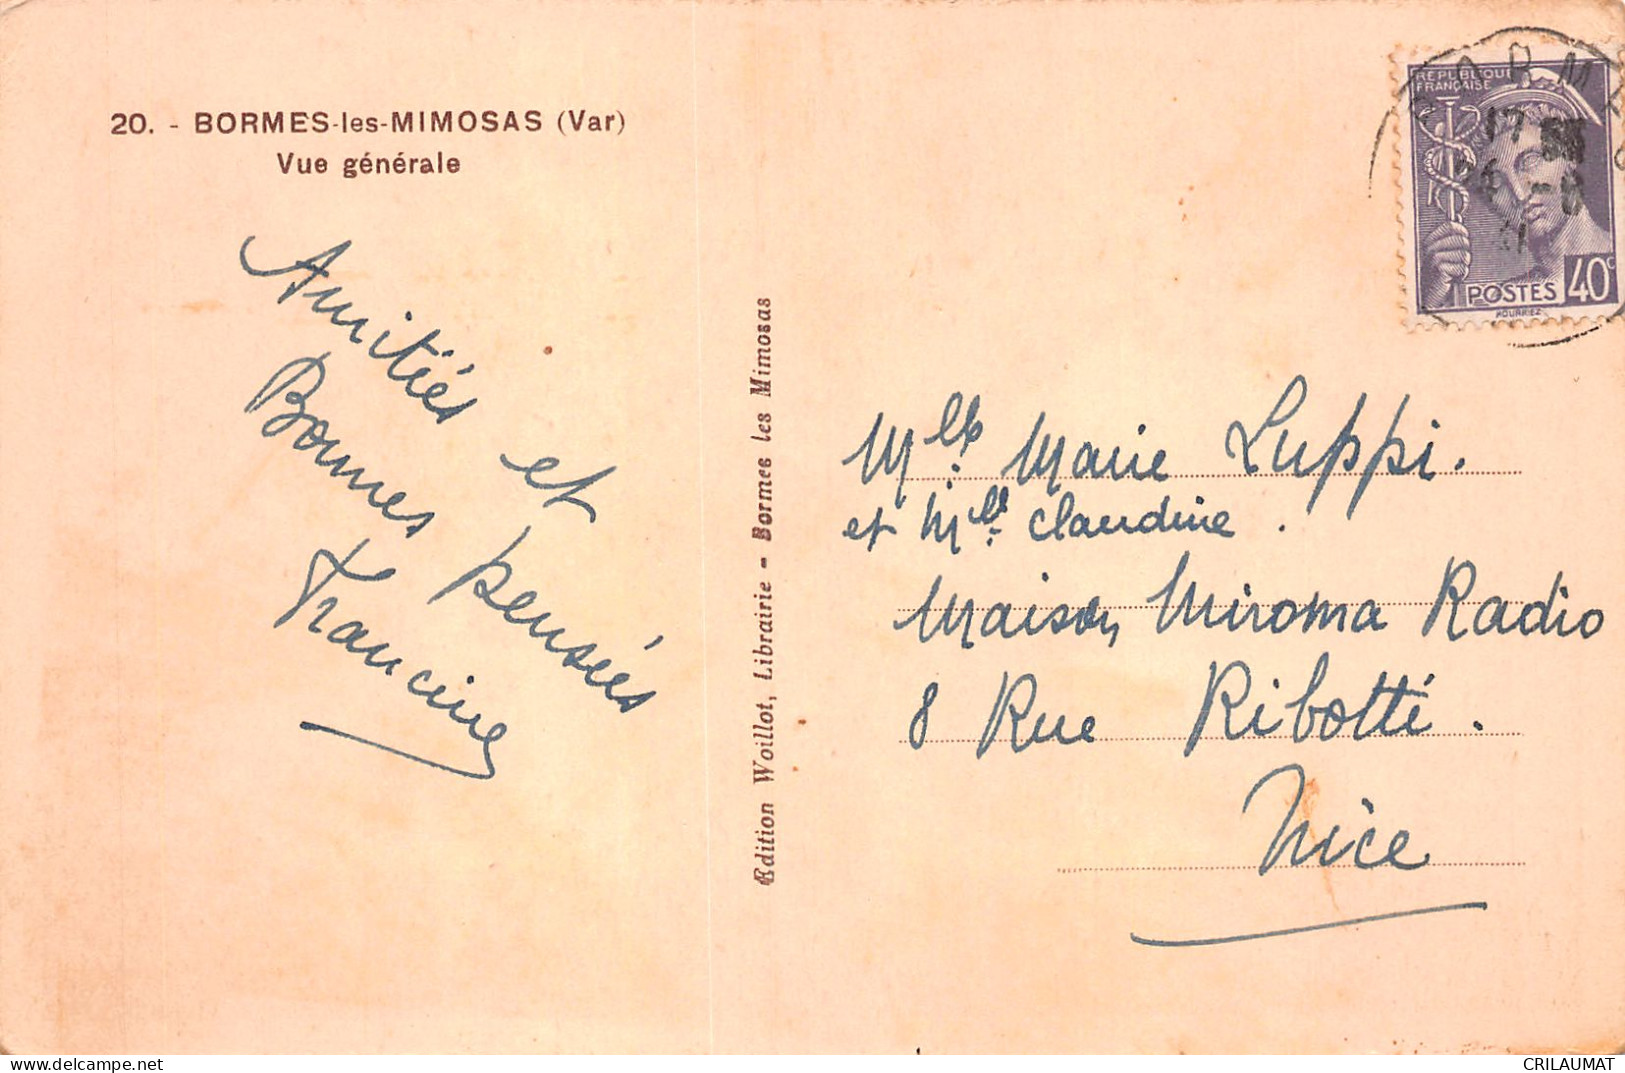 20. - BORMES-les-MIMOSAS (Var)
Vue générale
Amitiés et
Bonnes pensées
Francine
Edition Woillot, Librairie - Bormes les Mimosas
REPUBLIQUE
FRANÇAISE
POSTES 40c
BORMES
17
Mlle Marie Luppi.
et Mlle Claudine.
Maison Miroma Radio
8 Rue Ribotti.
Nice
CRILAUMAT